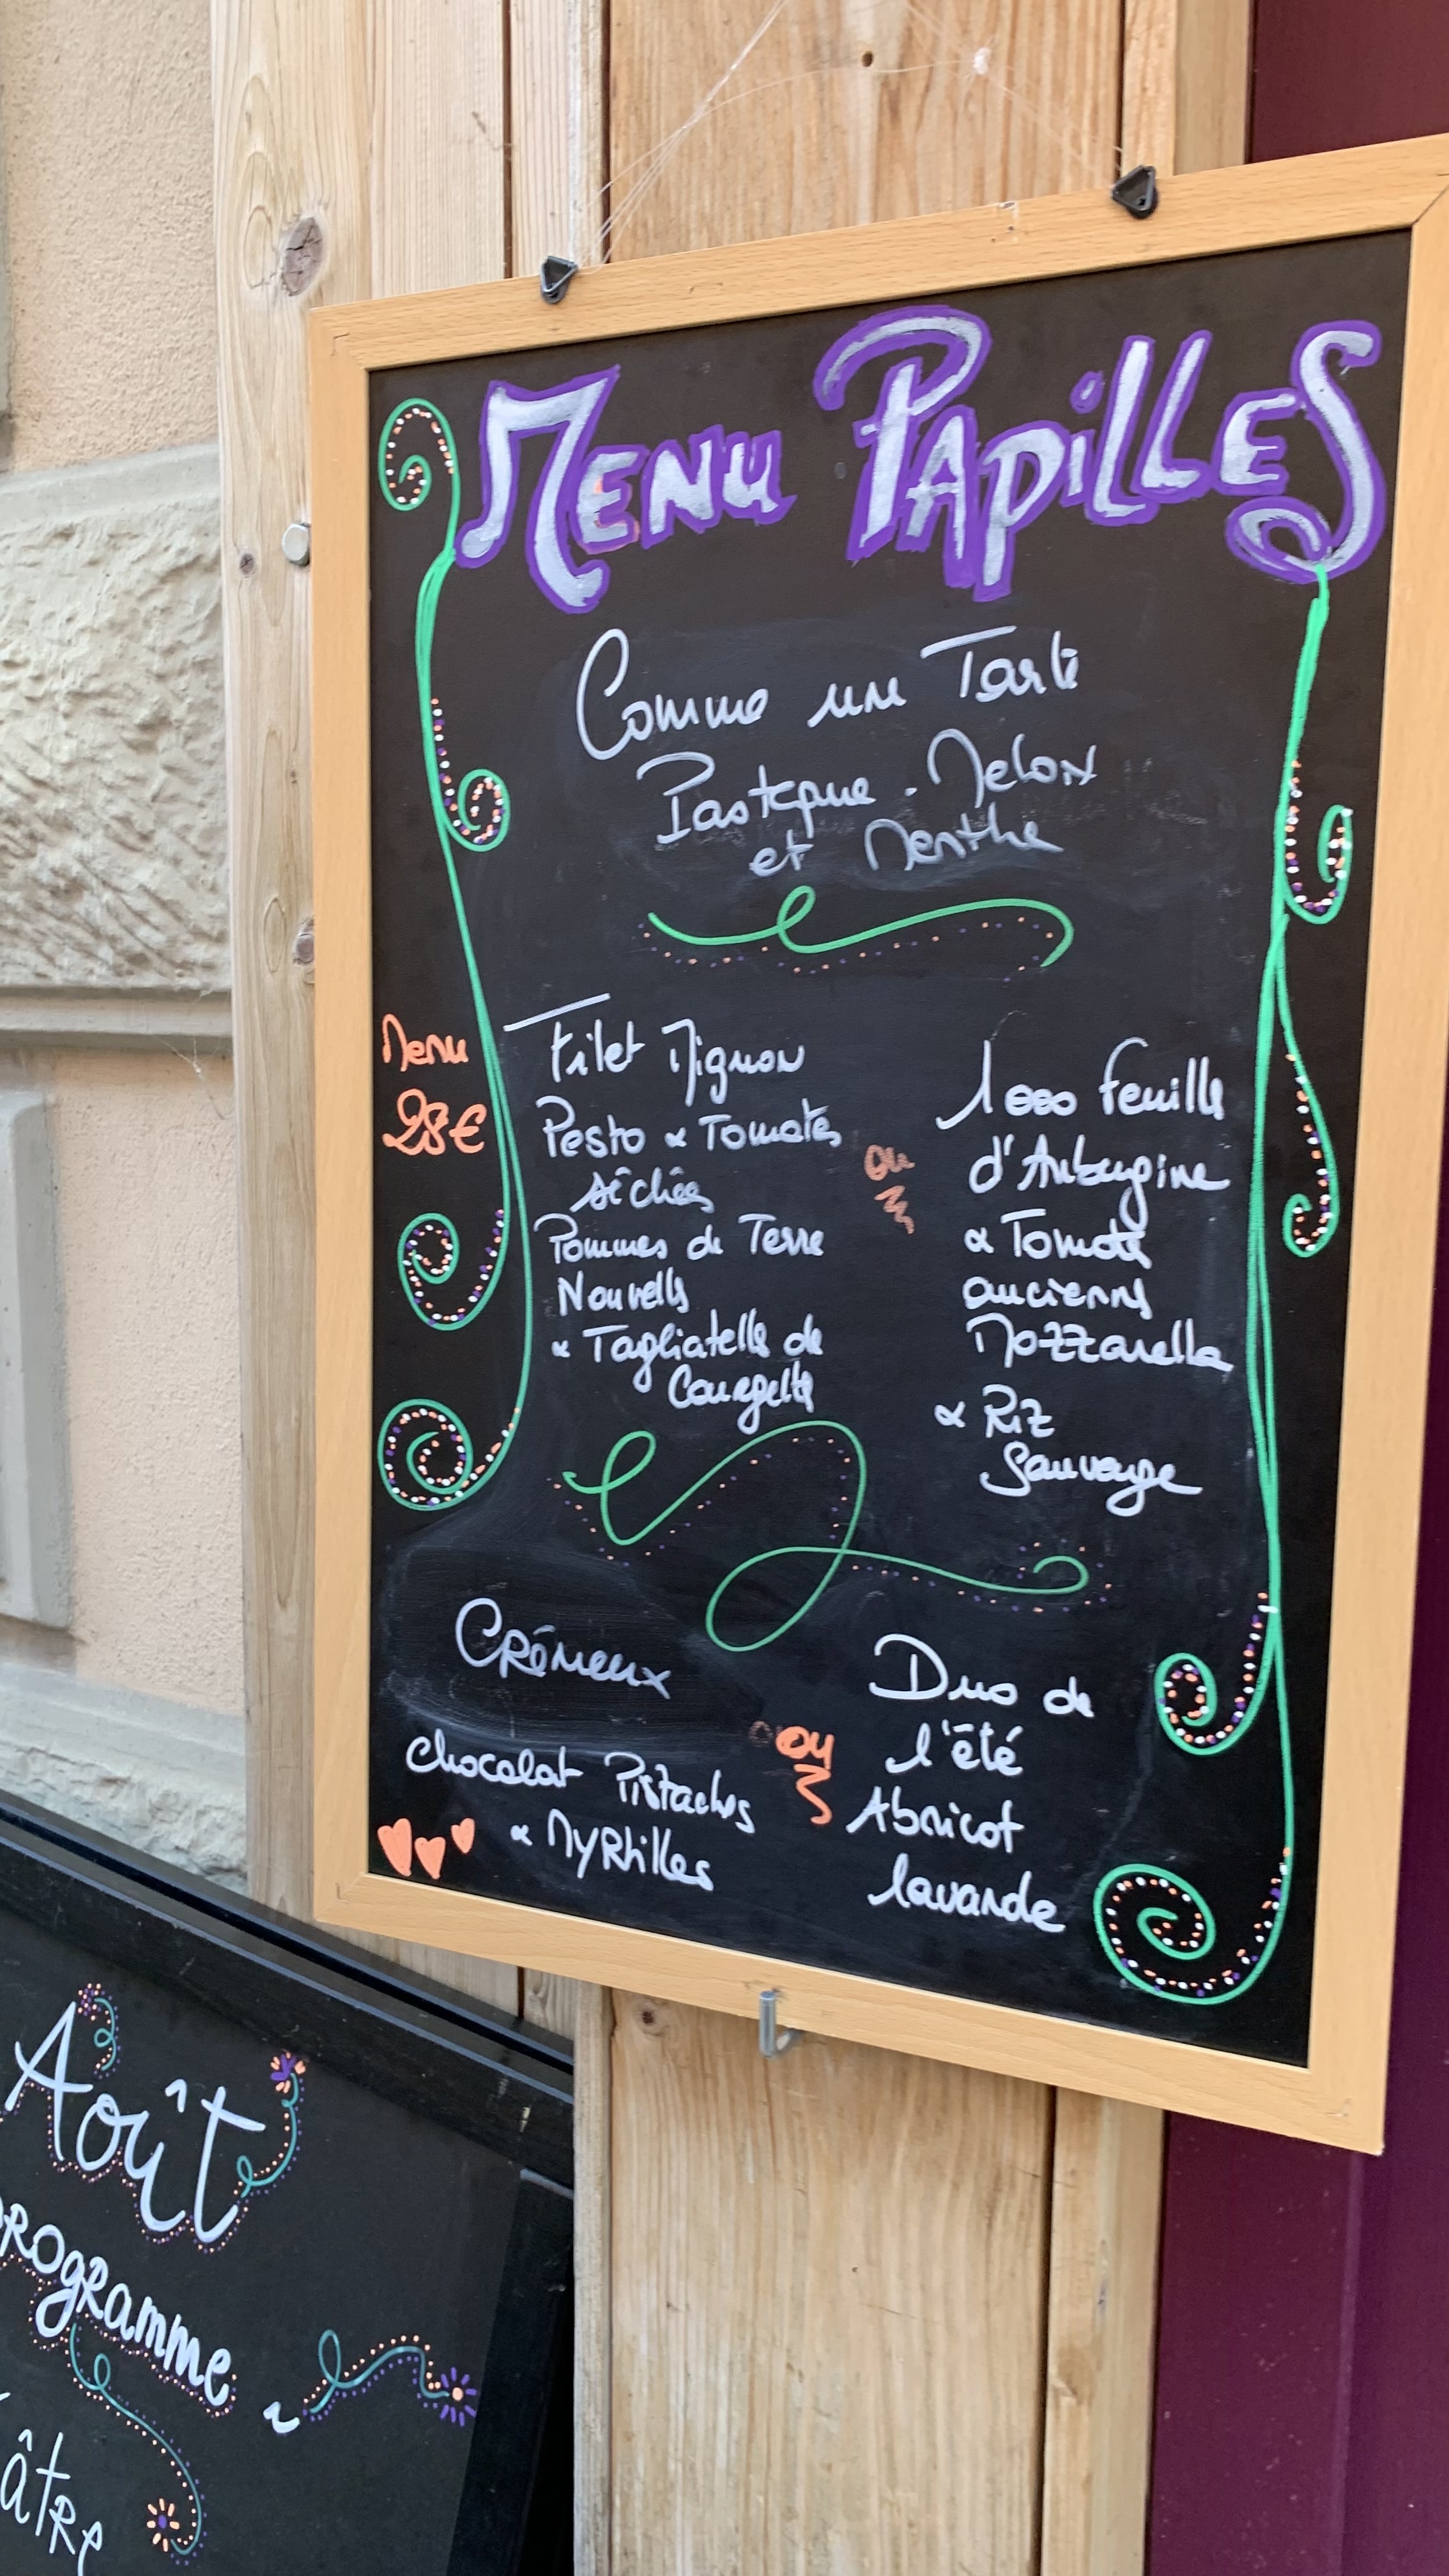 Menu Papilles
Comme une Tarte
Pastèque. Melon
et Menthe
Menu
28€
Filet Mignon
Pesto & Tomates
séchées
Pommes de Terre
Nouvelles
& Tagliatelle de
Courgette
ou
1000 feuille
d'Aubergine
& Tomate
anciennes
Mozzarella
& Riz
Sauvage
Crémeux
chocolat Pistaches
& Myrtilles
ou
Duo de
l'été
Abricot
lavande
Août
programme
âtre